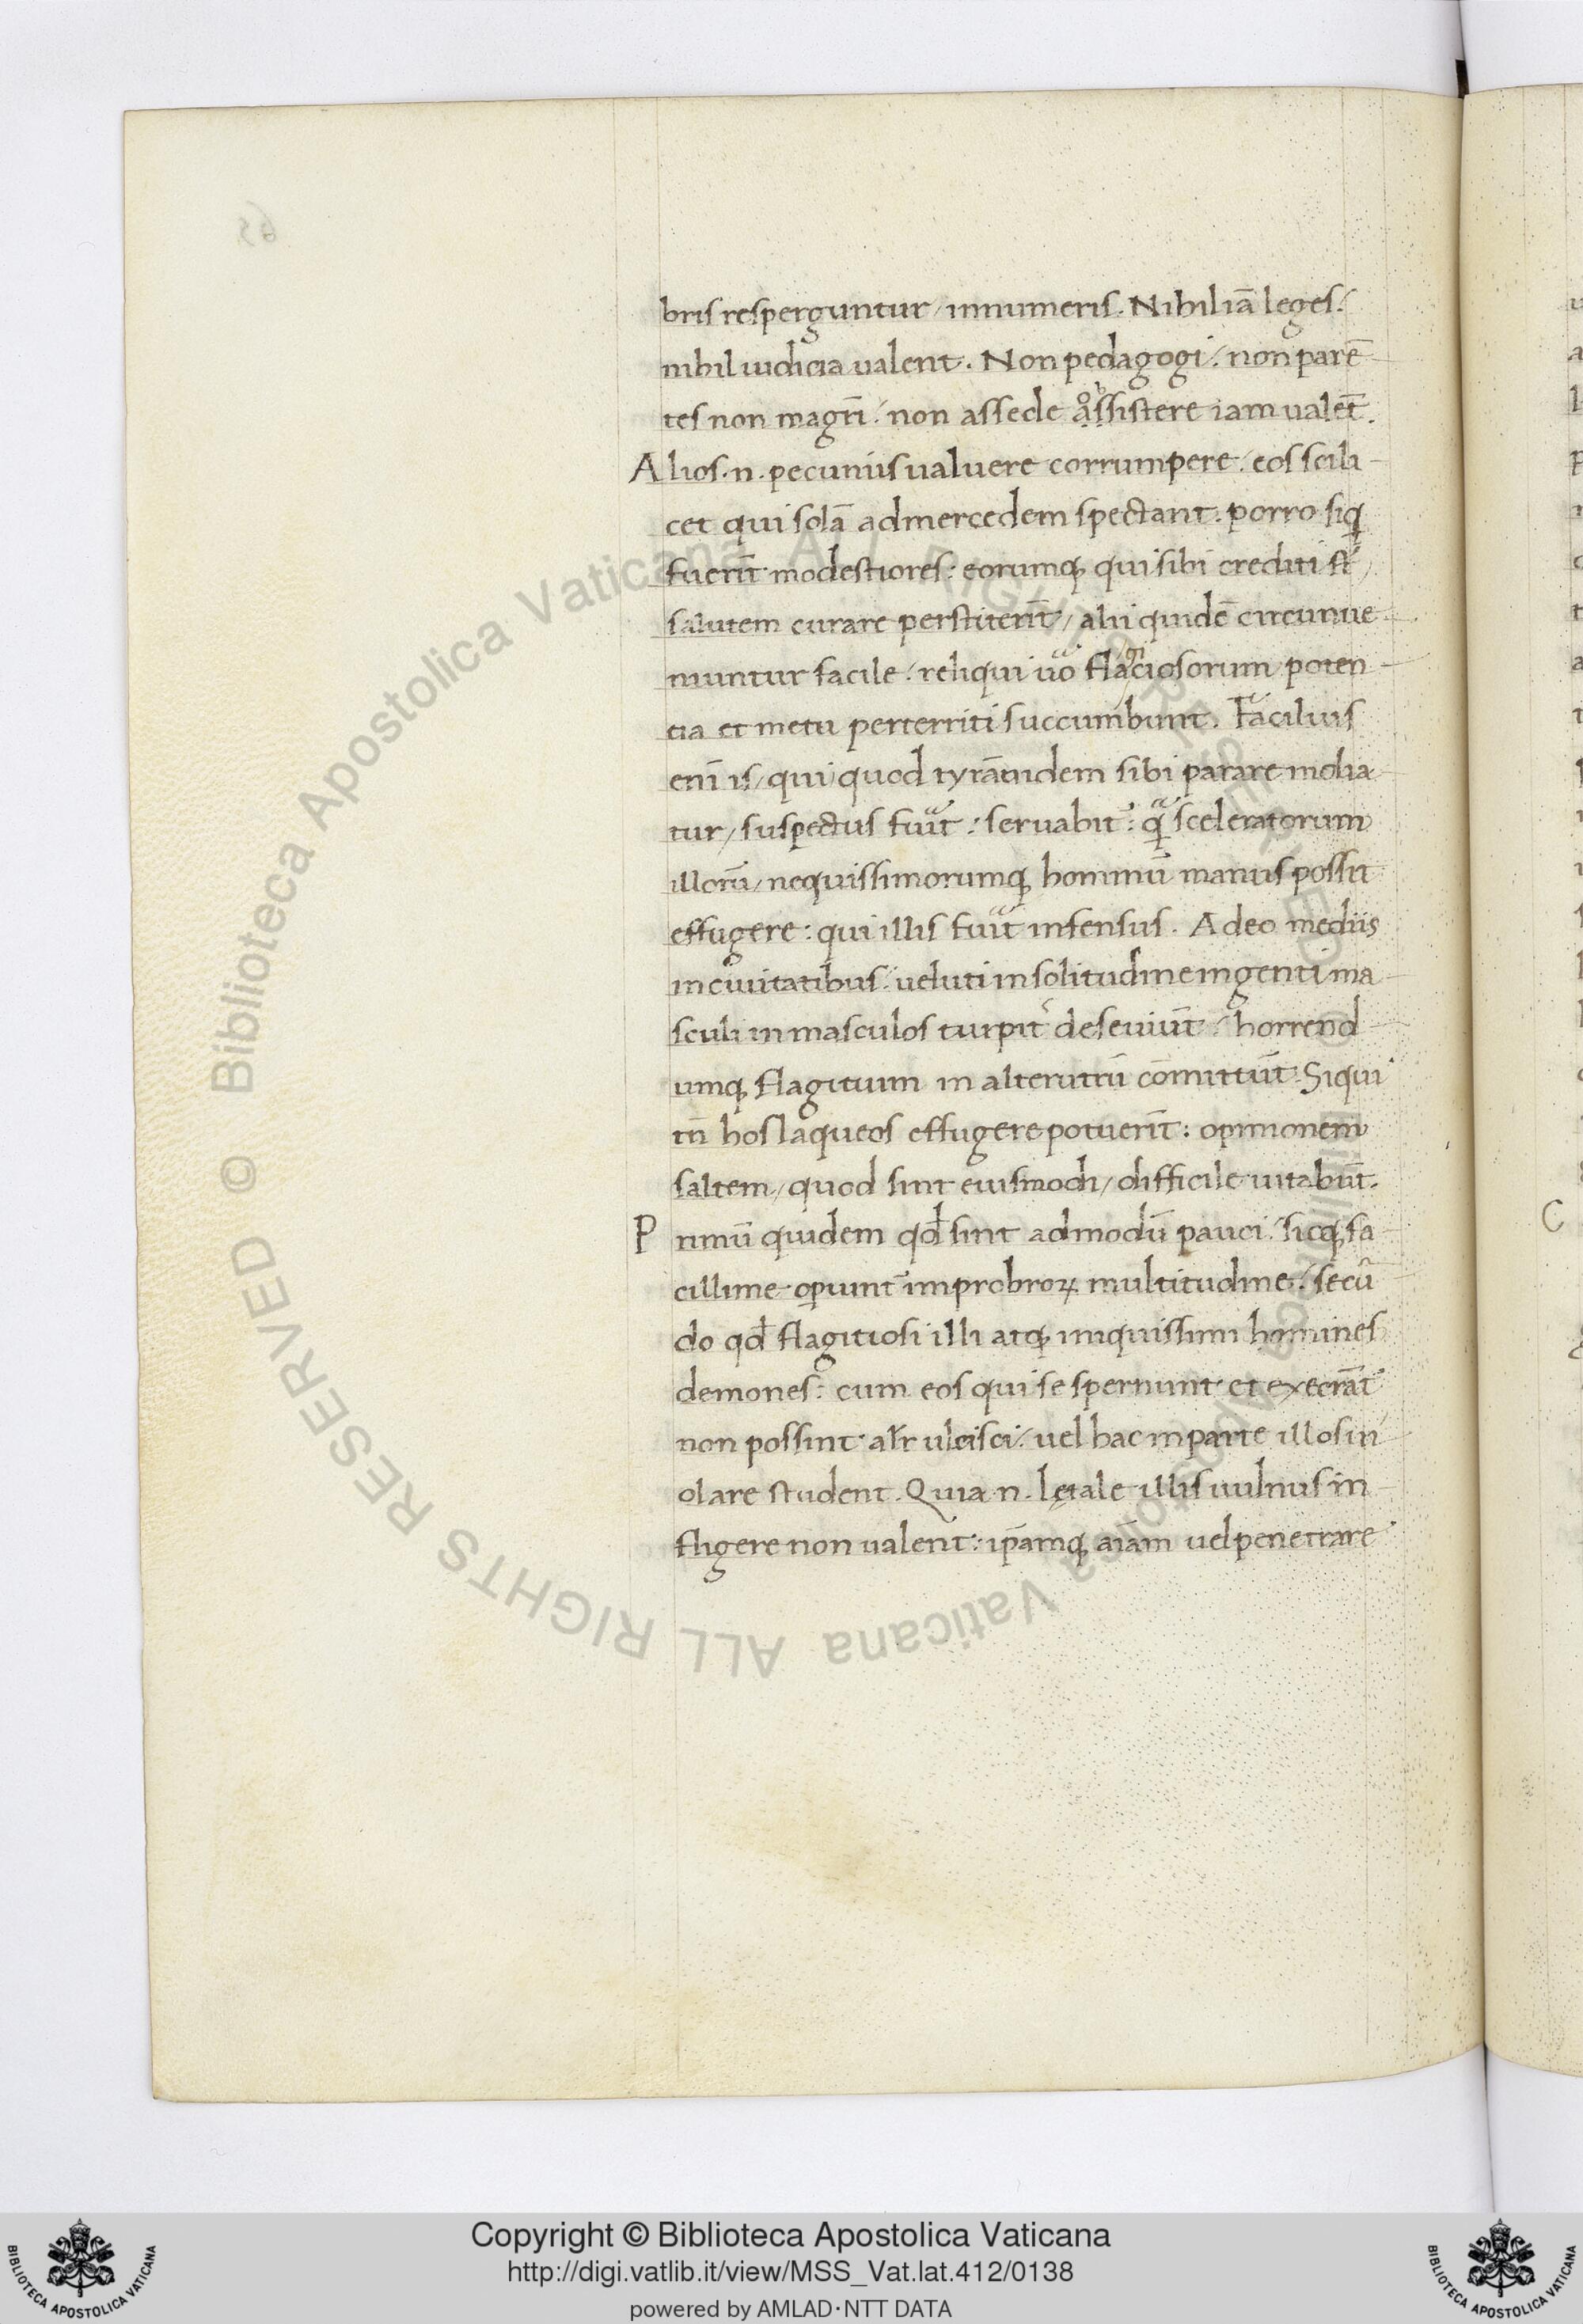 brisresperguntur / innumeris. Nihil iā leges /
nihil iudicia ualent. Non pedagogi / non parē
tes non magr̄i / non assecle assistere iam ualēt.
Alios .n. pecuniis ualuere corrumpere / eos scili
cet qui solā ad mercedem spectant. porro siq̄
fuerīt modestiores: eorumq; qui sibi crediti st̄ /
salutem curare perstiterīt / alii quidē circunue
niuntur facile / reliqui ūo flaciosorum poten
gi
tia et metu perterriti succumbunt. Facilius
enī is / qui quod tyrānidem sibi parare molia
tur / suspectus fuit: seruabit: q̄ sceleratorum
illorū / nequissimorumq; hominū manus possit
effugere: qui illis fuit infensus. Adeo mediis
in ciuitatibus / ueluti in solitudine ingenti ma
sculi in masculos turpit̄ deseuiūt / horrend
umq; flagitium in alterutrū cōmittūt. Siqui
tn̄ hos laqueos effugere potuerīt: opinionem
saltem / quod sint eiusmodi / difficile uitabūt.
Primū quidem qđ sint admodū pauci / sicq; fa
cillime opiunt̄ improbroꝝ multitudine / secū
do qđ flagitiosi illi atq; iniquissimi homines
demones: cum eos qui se spernunt et execrāt
non possint alr̄ ulcisci / uel hac in parte illos ui
olare student. Quia .n. lętale illis uulnus in
fligere non ualent: ip̄amq; aīam uel penetrare
65
C
Copyright © Biblioteca Apostolica Vaticana
http://digi.vatlib.it/view/MSS_Vat.lat.412/0138
powered by AMLAD·NTT DATA
BIBLIOTECA APOSTOLICA VATICANA
BIBLIOTECA APOSTOLICA VATICANA
© Biblioteca Apostolica Vaticana ALL RIGHTS RESERVED
© Biblioteca Apostolica Vaticana ALL RIGHTS RESERVED